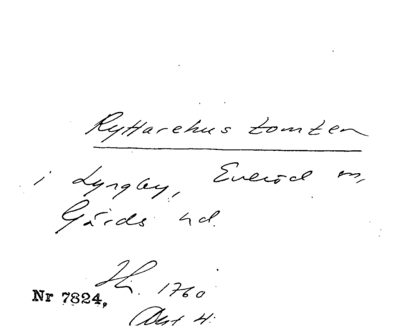 Ryttarehus tomten
i Lyngby, Everöd sn,
Gärds hd.
1760
Nr 7824,